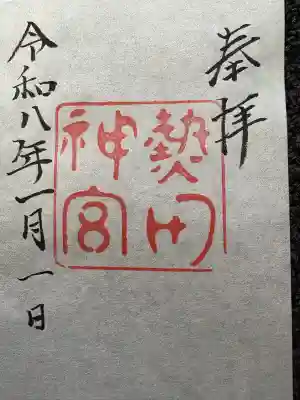 奉拝
熱田
神宮
令和八年一月一日